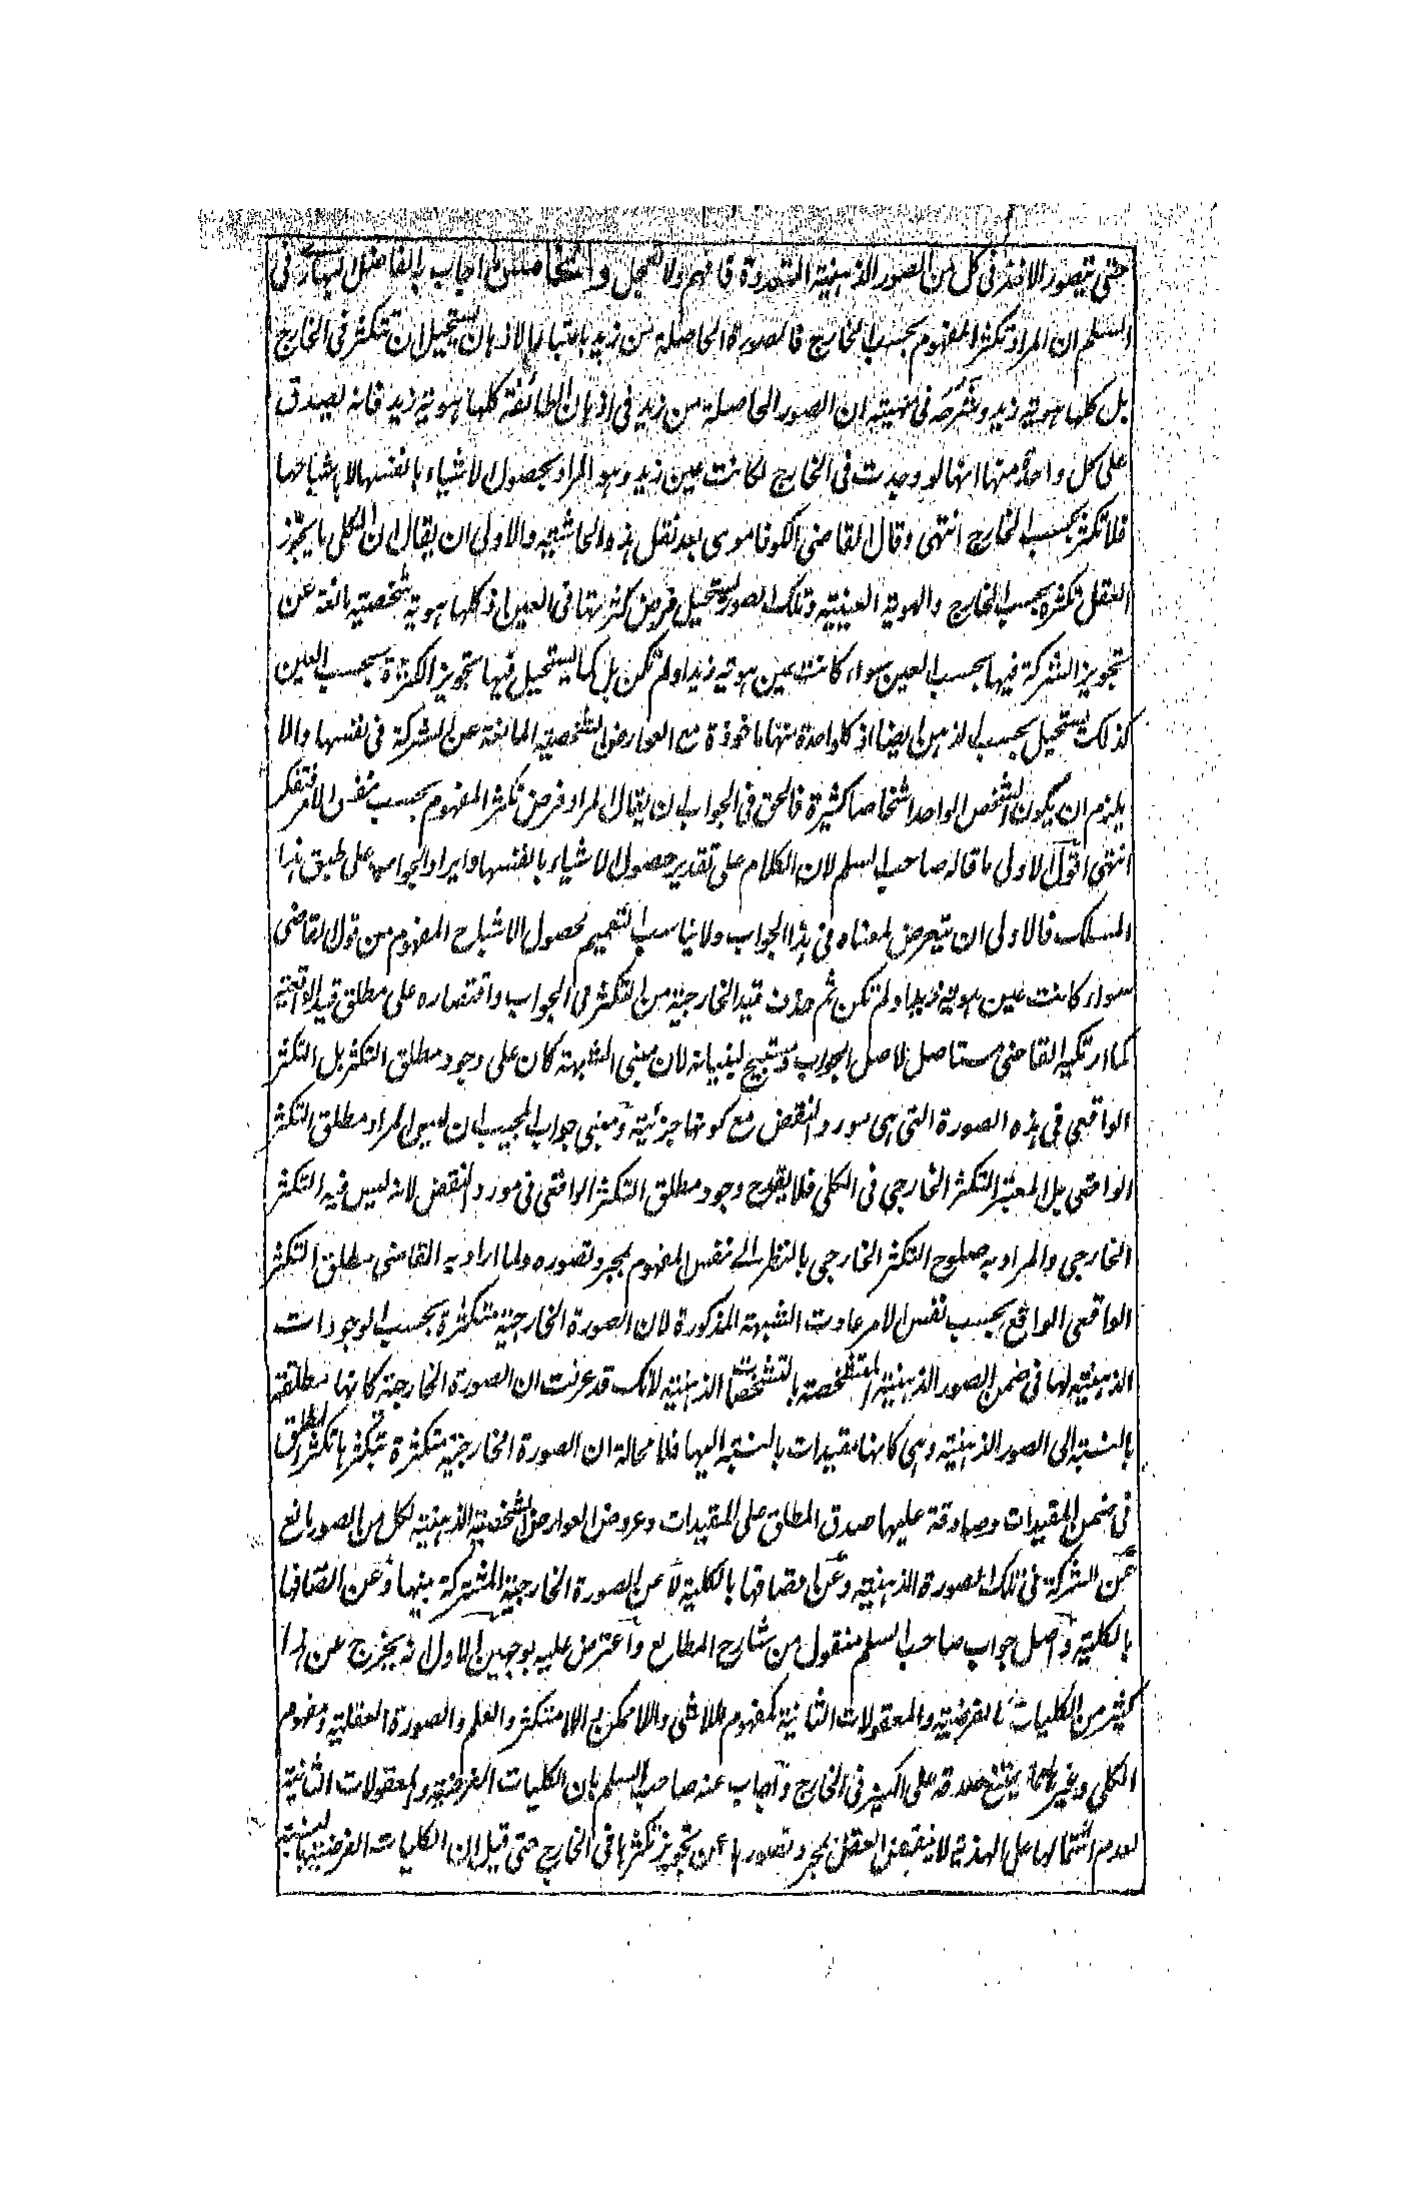 حتى يتصور الاخذ فى كل من الصور الذهنية المتعددة فافهم ولا تعجل و الخامس ما اجاب به الفاضل البهارى فى
السلم ان المراد تكثر المفهوم بحسب الخارج فالصورة الحاصلة من زيد باعتبار الاذهان يستحيل ان تتكثر فى الخارج
بل كلها هوية زيد وشرحه فى منهيته ان الصور الحاصلة من زيد فى اذهان الطائفة كلها هوية زيد فانه يصدق
على كل واحد منها انها لو وجدت فى الخارج لكانت عين زيد وهو المراد بحصول الاشياء بانفسها لا باشباحها
فلا تكثر بحسب الخارج انتهى وقال القاضى الكوفاموى بعد نقل هذه الحاشية والاولى ان يقال ان الكلى ما يجوز
العقل تكثره بحسب الخارج والهوية العينية وتلك الصور يستحيل فرض كثرتها فى العين اذ كلها هوية شخصية مانعة عن
تجويز الشركة فيها بحسب العين سواء كانت عين هوية زيد او لم تكن بل كما يستحيل فيها تجويز الكثرة بحسب العين
كذلك يستحيل بحسب الذهن ايضا اذ كل واحدة منها ماخوذة مع العوارض الشخصية المانعة عن الشركة فى نفسها والا
يلزم ان يكون الشخص الواحد اشخاصا كثيرة فالحق فى الجواب ان يقال المراد فرض تكثر المفهوم بحسب نفس الامر فتفكر
انتهى اقول الاولى ما قاله صاحب السلم لان الكلام على تقدير حصول الاشياء بانفسها وايراد الجواب على طبق هذا
المسلك فالاولى ان يتعرض لمعناه فى هذا الجواب ولا يناسب التعميم لحصول الاشباح المفهوم من قول القاضى
سواء كانت عين هوية زيد او لم تكن ثم حذف قيد الخارجية من التكثر فى الجواب واقتصاره على مطلق قيد الواقعية
كما ارتكبه القاضى مستاصل لاصل الجواب لبنيانه لان مبنى الشبهة كان على وجود مطلق التكثر بل التكثر
الواقعى فى هذه الصورة التى هى مورد النقض مع كونها جزئية ومبنى جواب المجيب ان ليس المراد مطلق التكثر
الواقعى بل المعتبر التكثر الخارجى فى الكلى فلا يقدح وجود مطلق التكثر الواقعى فى مورد النقض لانه ليس فيه التكثر
الخارجى والمراد به صلوح التكثر الخارجى بالنظر الى نفس المفهوم بمجرد تصوره ولما اراد به القاضى مطلق التكثر
الواقعى الواقع بحسب نفس الامر عادت الشبهة المذكورة لان الصورة الخارجية متكثرة بحسب الوجودات
الذهنية لها فى ضمن الصور الذهنية المتشخصة بالتشخصات الذهنية لانك قد عرفت ان الصورة الخارجية كانها مطلقة
بالنسبة الى الصور الذهنية وهى كانها مقيدات بالنسبة اليها فلا محالة ان الصورة الخارجية متكثرة بتكثرها تكثر المطلق
فى ضمن المقيدات وصادقة عليها صدق المطلق على المقيدات وعروض العوارض الشخصية الذهنية لكل من الصور مانع
عن الشركة فى تلك الصورة الذهنية وعن اتصافها بالكلية لا عن الصورة الخارجية المشتركة بينها وعن اتصافها
بالكلية واصل جواب صاحب السلم منقول من شارح المطالع واعترض عليه بوجهين الاول انه يخرج عن هذا
كثير من الكليات كالفرضية والمعقولات الثانية كمفهوم اللاشئ واللاممكن واللامتكثر والعلم والصورة العقلية ومفهوم
الكلى وغيرها مما يمتنع صدقه على الكثير فى الخارج واجاب عنه صاحب السلم بان الكليات الفرضية والمعقولات الثانية
لعدم اشتمالها على الهذية لا ينقبض العقل بمجرد تصورها عن تجويز تكثرها فى الخارج حتى قيل ان الكليات الفرضية بالنسبة